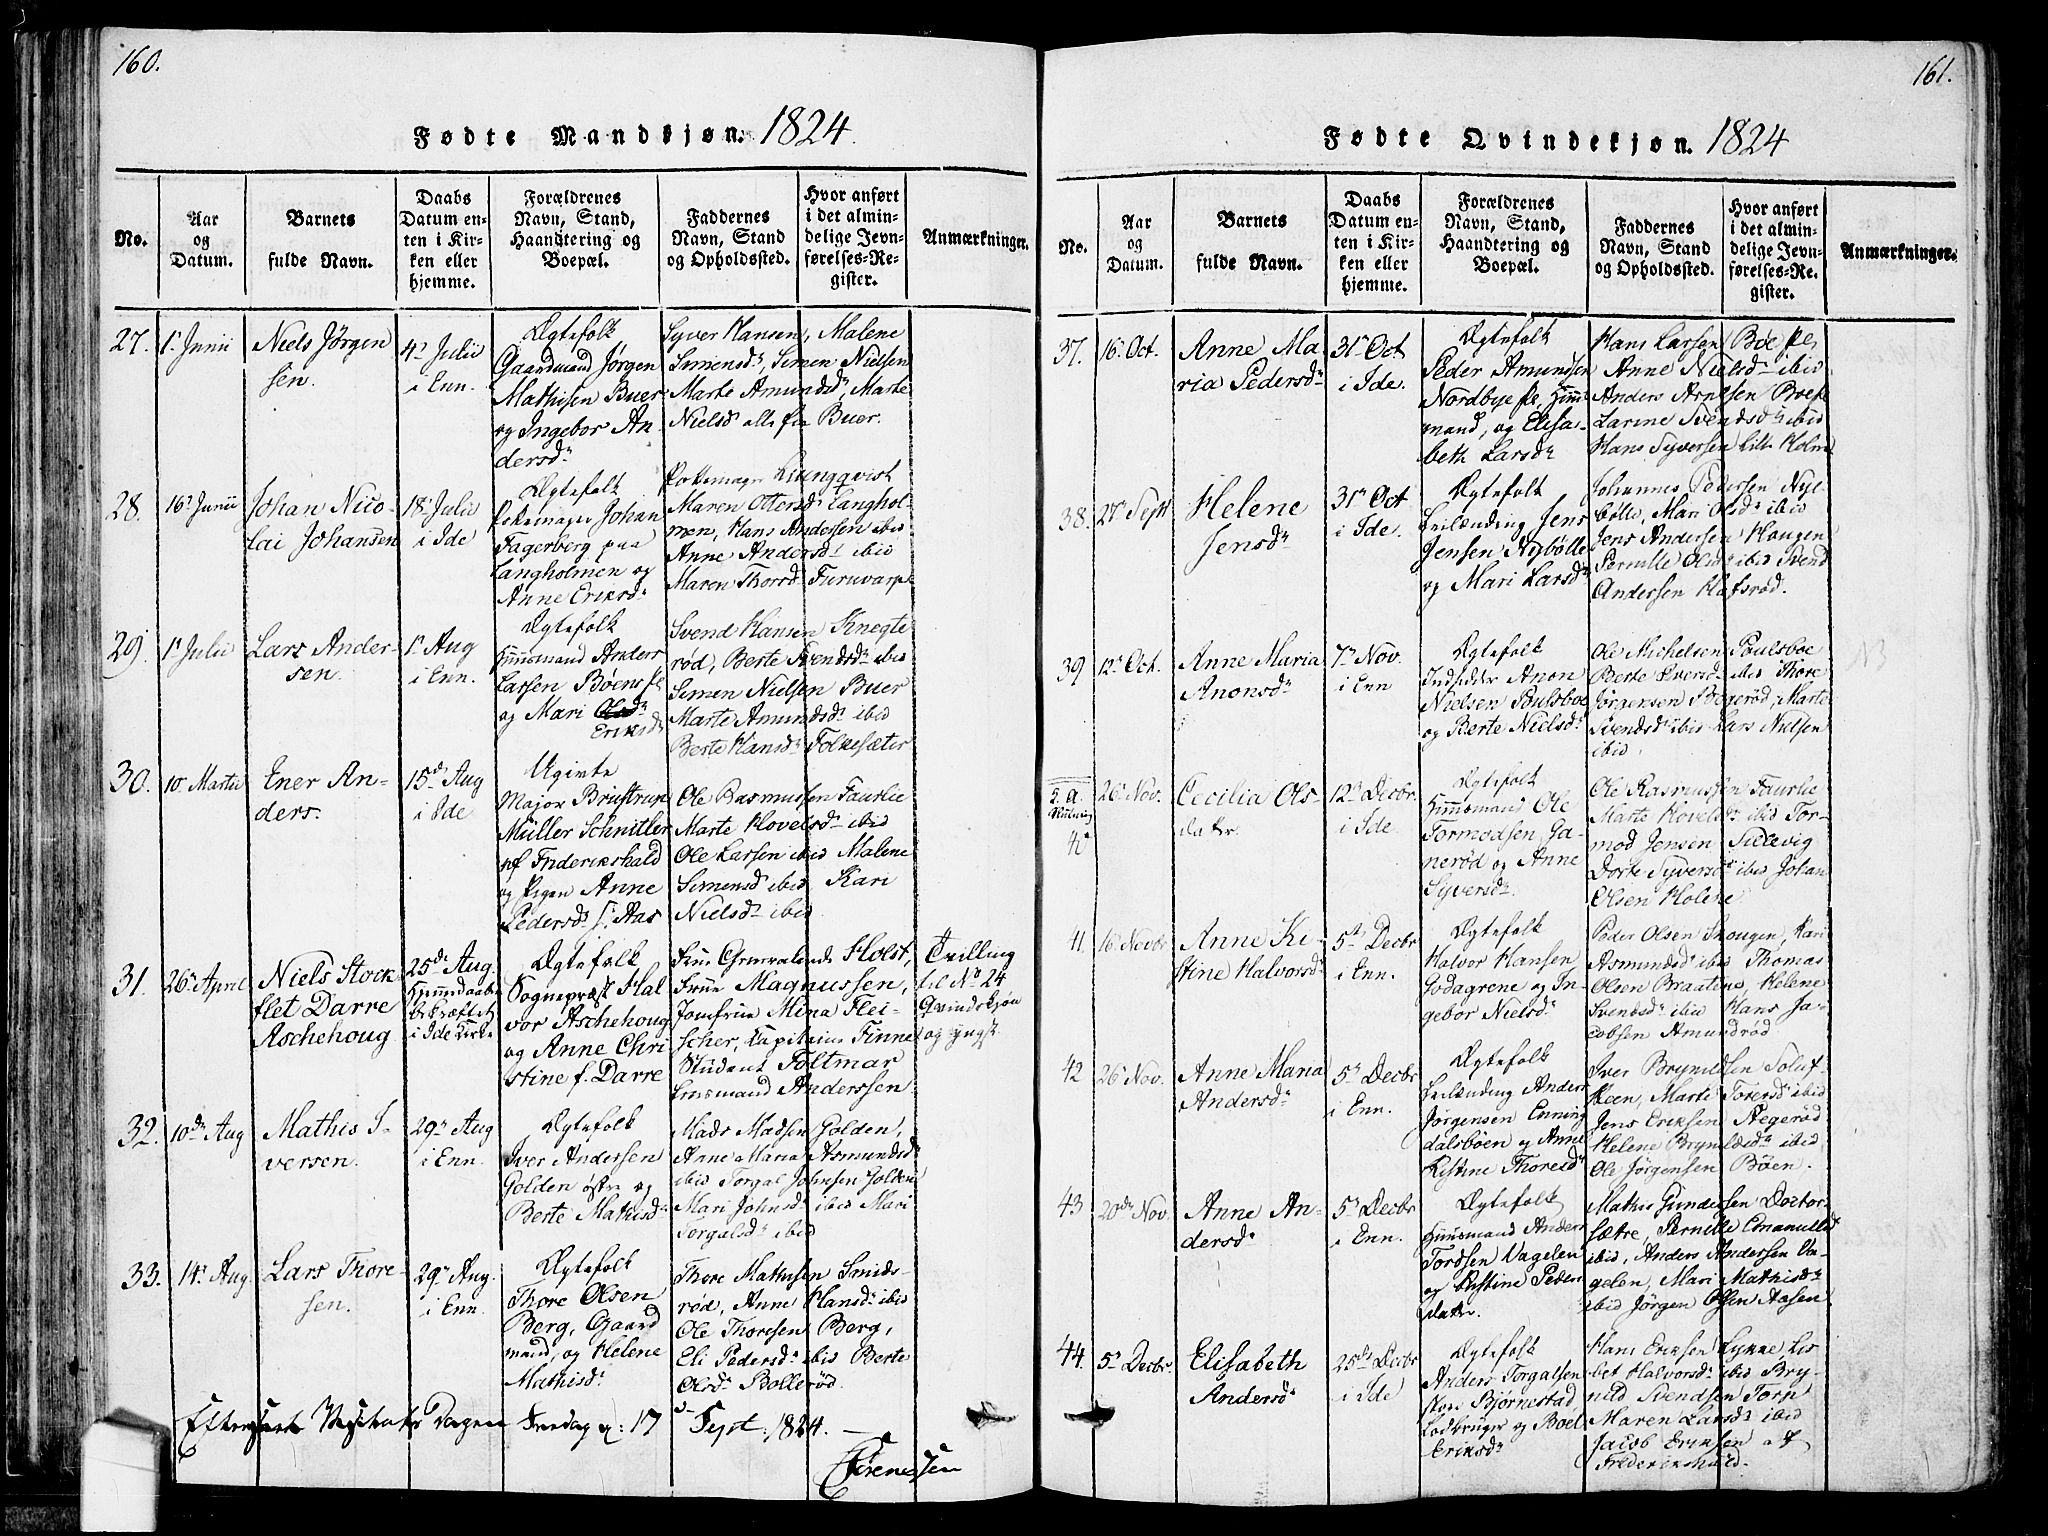 160.
Fødte Mandkjøn. 1824.
No.
Aar
og
Datum.
Barnets
fulde Navn.
Daabs
Datum en-
ten i Kir-
ken eller
hjemme.
Forældrenes
Navn, Stand,
Haandtering og
Boepæl.
Faddernes
Navn, Stand
og Opholdssted.
Hvor anført
i det almin-
delige Jevn-
førelses-Re-
gister.
Anmærkninger.
27.
1 Junii
Niels Jørgen
sen.
4 Julii
i Enn.
Ægtefolk
Gaardmand Jørgen
Mathisen Buer
og Ingebor An
dersd
Syver Hansen, Malene
Simensd, Simen Nielsen
Marte Amundsd, Marte
Nielsd alle fra Buer.
28.
16 Junii
Johan Nico-
lai Johansen
18 Julii
i Ide
Ægtefolk
Johan
Fagerberg paa
Langholmen og
Anne Eriksd
Liungqvist
Maren Ottersd Langhol-
men, Hans Andersen ibid
Anne Andersd ibid
Maren Thorsd Furuvarp
29.
1 Julii
Lars Ander-
sen.
1 Aug
i Enn.
Ægtefolk
Huusmand Anders
Larsen Böens
og Mari Olsd
Eriksd
Svend Hansen Knegte
rød, Berte Svendsd ibid
Simen Nielsen Buer
Marte Amundsd ibid
Berte Hansd Folkesæter
30.
10 Martii
Ener An-
ders.
15 Aug
i Ide
Ugivte
Major
Müller Schnitler
af Friderikshald
og Pigen Anne
Pedersd Aas
Ole Rasmussen Faurlie
Marte Hovelsd ibid
Ole Larsen ibid Malene
Simensd ibid Kari
Nielsd ibid
31.
26 April
Niels Stock
flet Darre
Aschehoug
25 Aug.
Hjemmedaaben
bekræftet
i Ide Kirke
Ægtefolk
Sognepræst Hal
vor Aschehoug
og Anne Chri
stine f. Darre
Frue Holst,
Frue Magnussen,
Jomfrue Mina Flei-
scher, Capitain Finne
Student Foltmar
Anderssen
Tvilling
til No 24
Qvindekjøn
og yngst
32.
10 Aug
Mathis I-
versen.
29 Aug
i Enn.
Ægtefolk
Iver Andersen
Golden østre og
Berte Mathisd
Mads Madsen Golden,
Anne Maria Asmundsd
ibid Torgal Johnsen Golden
Mari Johnsd ibid Mari
Torgalsd ibid
33.
14 Aug.
Lars Thore-
sen.
29 Aug.
i Enn.
Ægtefolk
Thore Olsen
Berg, Gaard
mand, og Helene
Mathisd
Thore Mathisen Smids-
rød, Anne Hansd ibid
Ole Thoresen Berg,
Eli Pedersd ibid Berte
Olsd Bollerød.
Efterseet Visitats Dagen Fredag d: 17 Sept: 1824.
Sørenssen
161.
Fødte Qvindekjøn. 1824
No.
Aar
og
Datum.
Barnets
fulde Navn.
Daabs
Datum en-
ten i Kir-
ken eller
hjemme.
Forældrenes
Navn, Stand,
Haandtering og
Boepæl.
Faddernes
Navn, Stand
og Opholdssted.
Hvor anført
i det almin-
delige Jevn-
førelses-Re-
gister.
Anmærkninger.
37.
16 Oct.
Anne Ma
ria Pedersd
31 Oct
i Ide.
Ægtefolk
Peder Amundsen
Nordbye pl. Huus-
mand, og Elisa-
beth Larsd
Hans Larsen Böe pl,
Anne Nielsd ibid
Anders Arnesen Boe pl
Larine Svendsd ibid
Hans Syversen lille Holm
38.
27 Sept
Helene
Jensd
31 Oct
i Ide.
Ægtefolk
Leilænding Jens
Jensen Nybølle
og Mari Larsd
Johannes Pedersen Ny-
bölle, Mari Olsd ibid
Jens Andersen Haugen
Pernille Olsd ibid Svend
Andersen Hafsrød.
39
12 Oct.
Anne Maria
Anonsd
7 Nov.
i Enn
Ægtefolk
Indsidder Anon
Nielsen Poulsboe
og Berte Nielsd
Ole Michelsen Poulsboe
Berte Iversd ibid Thore
Jørgensen, Marte
Svendsd ibid Lars Nielsen
ibid.
NB
40
26 Nov.
Cecilia Ols-
dater.
12 Decbr.
i Ide.
Ægtefolk
Huusmand Ole
Tormodsen, Ga-
nerød og Anne
Syversd.
Ole Rasmussen Faurlie
Marte Hovelsd ibid Tor-
mod Jensen Sillevig
Dorte Syversd ibid Johan
Olsen Holene
41.
16 Novbr
Anne Ki-
stine Halvorsd
5 Decbr
i Enn.
Ægtefolk
Halvor Hansen
Godagrene og In-
gebor Nielsd
Peder Olsen Skougen, Kari
Asmundsd ibid Thomas
Olsen Braatene, Helene
Svendsd ibid Hans Ja-
cobsen Amundrød
42
26 Nov.
Anne Maria
Andersd
5 Decbr
i Enn.
Ægtefolk
Leilænding Anders
Jørgensen Enning
dalsböen og Anne
Kistine Thoresd
Iver Brynildsen
Marte Toresd ibid
Jens Eriksen Hegerød
Helene Brynildsd ibid
Ole Jørgensen Böen.
43
20 Nov.
Anne An-
dersd
5 Decbr
i Enn.
Ægtefolk
Huusmand Anders
Tordsen Vagelen
og Kistine Peders
dater.
Mathis Gundersen Doctor-
sætre, Pernille Emanuelsd
ibid, Anders Andersen Va-
gelen, Mari Mathisd
ibid Jørgen Olsen Aasen
44.
5 Decbr.
Elisabeth
Andersd
25 Decbr
i Ide
Ægtefolk
Anders Torgalsen
store Bjørnestad
og Boel
Eriksd
Hans Eriksen Lis
bet Halvorsd ibid Bry-
nild Svendsen Torp
Maren Larsd ibid
Jacob Eriksen af
Frederikshald.